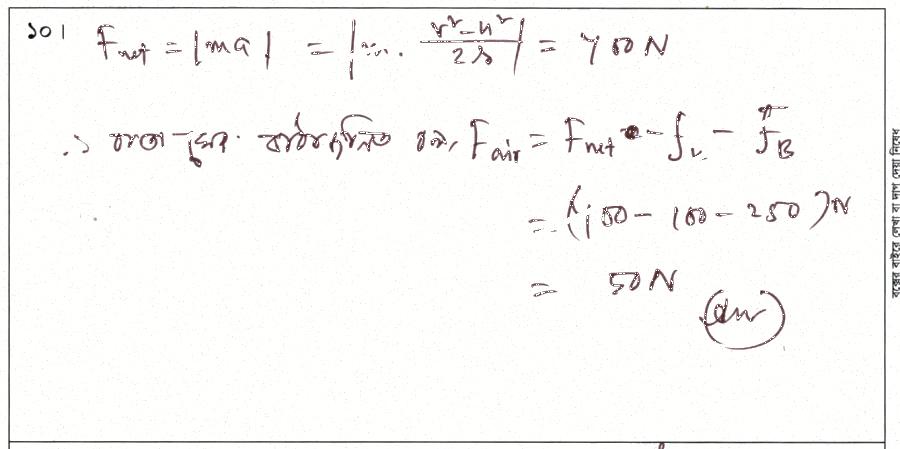 ১০। F_net = |ma| = |m. (v² - u²)/2s| = 400 N
∴ বাতাসের বাধাজনিত বল, F_air = F_net - f_k - F_B
= (400 - 100 - 250) N
= 50 N
(Ans)
বক্সের বাইরে লেখা বা দাগ দেয়া নিষেধ